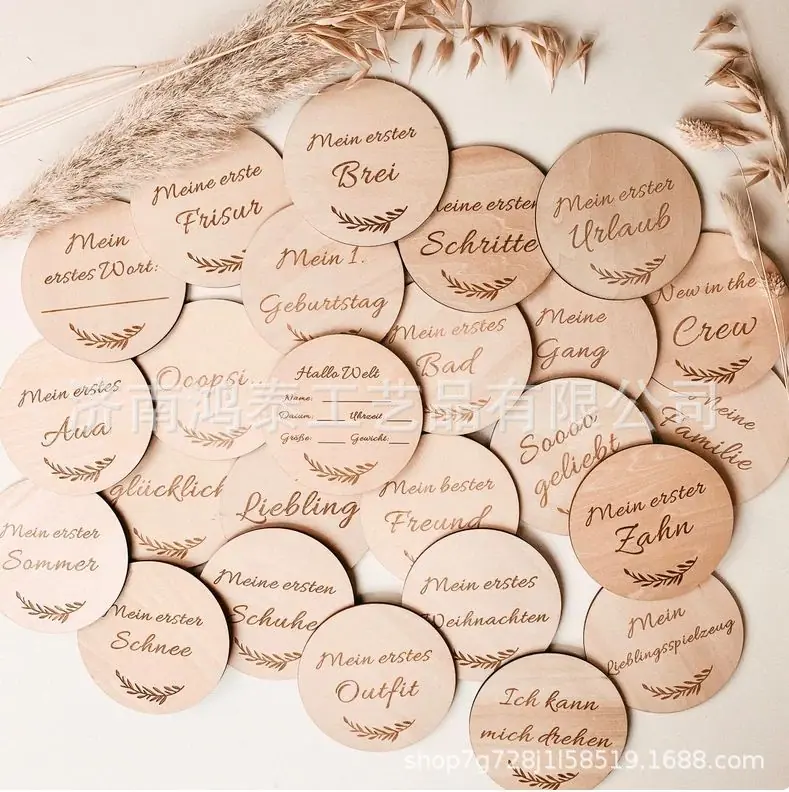 Mein erster
Brei
Meine erste
Frisur
Meine ersten
Schritte
Mein erster
Urlaub
Mein
erstes Wort:
Mein 1.
Geburtstag
Mein erstes
Bad
Meine
Gang
New in the
Crew
Mein erstes
Aua
Ooopsi...
Hallo Welt
Name:
Datum: Uhrzeit:
Größe: Gewicht:
Soooo
geliebt
Meine
Familie
济南鸿泰工艺品有限公司
glücklich
Liebling
Mein bester
Freund
Mein erster
Zahn
Mein erster
Sommer
Mein erster
Schnee
Meine ersten
Schuhe
Mein erstes
Weihnachten
Mein
Lieblingsspielzeug
Mein erstes
Outfit
Ich kann
mich drehen
shop7g728j1l58519.1688.com